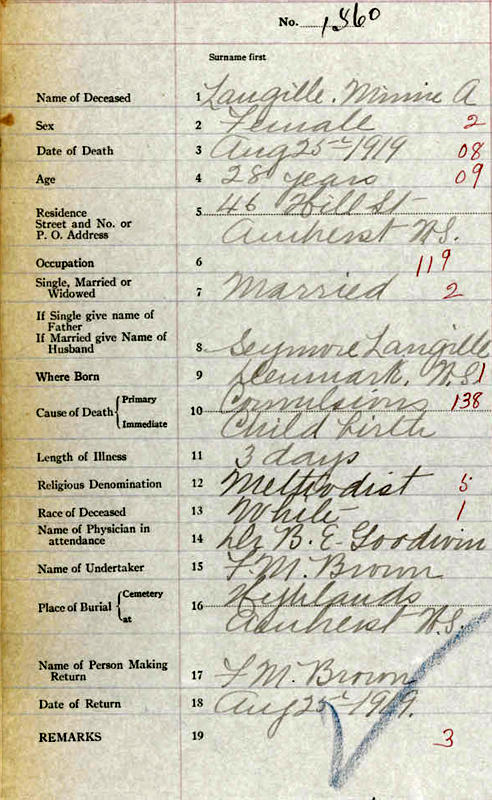 No. 1360
Surname first
Name of Deceased 1 Langille. Minnie A
Sex 2 Female 2
Date of Death 3 Aug 25th 1919 08
Age 4 28 years 09
Residence 5 46 Hill St
Street and No. or
P. O. Address Amherst N.S.
Occupation 6 119
Single, Married or
Widowed 7 Married 2
If Single give name of
Father
If Married give Name of
Husband 8 Seymore Langille
Where Born 9 Denmark. N.S. 1
Cause of Death { Primary 10 Convulsions 138
Immediate Child birth
Length of Illness 11 3 days
Religious Denomination 12 Methodist 5
Race of Deceased 13 White 1
Name of Physician in
attendance 14 Dr B. E. Goodwin
Name of Undertaker 15 F. M. Brown
Place of Burial { Cemetery 16 Highlands
at Amherst N.S.
Name of Person Making
Return 17 F M. Brown
Date of Return 18 Aug 25th 1919.
REMARKS 19 3